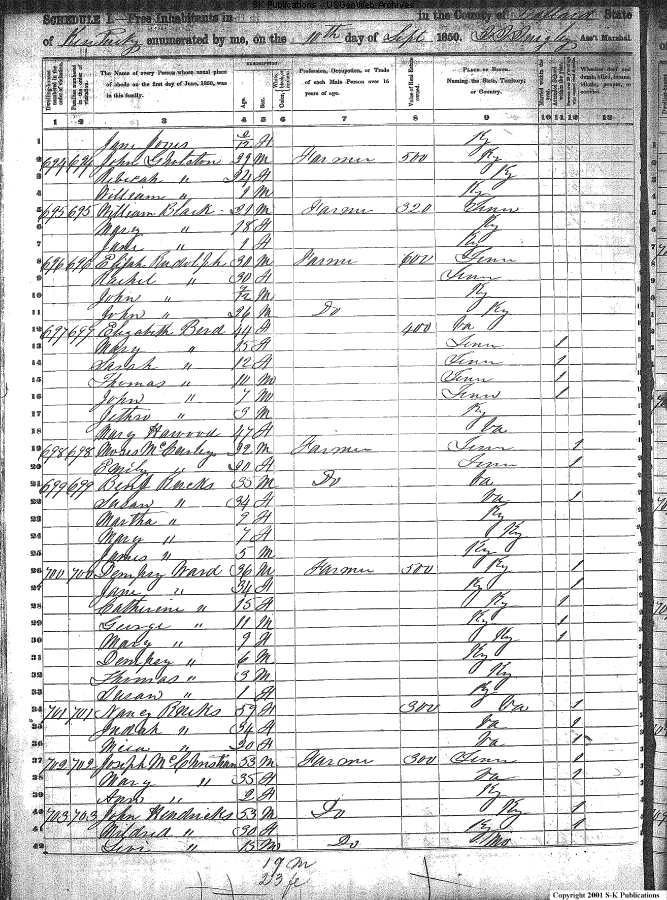 S-K Publications - USGenWeb Archives
SCHEDULE I.—Free Inhabitants in in the County of Ballard State
of Kentucky enumerated by me, on the 10th day of Sept 1850. Ass't Marshal
DESCRIPTION.
Dwelling-houses numbered in the order of visitation. Families numbered in the order of visitation. The Name of every Person whose usual place of abode on the first day of June, 1850, was in this family. Age. Sex. Color, Profession, Occupation, or Trade of each Male Person over 15 years of age. Value of Real Estate owned. Place of Birth. Naming the State, Territory, or Country. Married within the year. Whether deaf and dumb, blind, insane, idiotic, pauper, or convict.
1 2 3 4 5 6 7 8 9 10 11 12 13
1 Jane Jones /12 F Ky
2 694 694 John Gholston 29 M Farmer 500 Ky
3 Rebecah " 24 F Ky
4 William " 1 M Ky
5 695 695 William Black 21 M Farme 320 Tenn
6 Mary " 18 F Ky
7 Jane " 1 F Ky
8 696 696 Elijah Rudolph 30 M Farme 600 Tenn
9 Rachel " 30 F Tenn
10 John " /12 M Ky
11 John " 26 M Do Ky
12 697 697 Elizabeth Berd 44 F 400 Va
13 Mary " 15 F Tenn 1
14 Sarah " 12 F Tenn 1
15 Thomas " 10 M Tenn 1
16 John " 7 M Tenn 1
17 Jethro " 3 M Ky
18 Mary Hawood 47 F Va
19 698 698 McCarley 32 M Farmer Tenn 1
20 Emily " 20 F Tenn 1
21 699 699 Benj Rucks 35 M Do Va
22 Susan " 34 F Va 1
23 Martha " 9 F Ky
24 Mary " 7 F Ky
25 James " 5 M Ky
26 700 700 Dempsy Ward 36 M Farmer 500 Ky 1
27 Jane " 34 F Ky 1
28 Catherine " 15 F Ky 1
29 George " 11 M Ky 1
30 Mary " 9 F Ky 1
31 Dempsy " 6 M Ky
32 Thomas " 3 M Ky
33 Susan " 1 F Ky
34 701 701 Nancy Rucks 59 F 300 Va 1
35 Judah " 34 F Va 1
36 " 20 F Va 1
37 702 702 Joseph McChristian 53 M Farme 300 Tenn 1
38 Mary " 35 F Va 1
39 Ann " 2 F Ky
40 703 703 John Hendricks 53 M Do Ky 1
41 Mildred " 30 F Ky 1
42 Levi " 15 M Do Mo
19 m
23 fe
Copyright 2001 S-K Publications